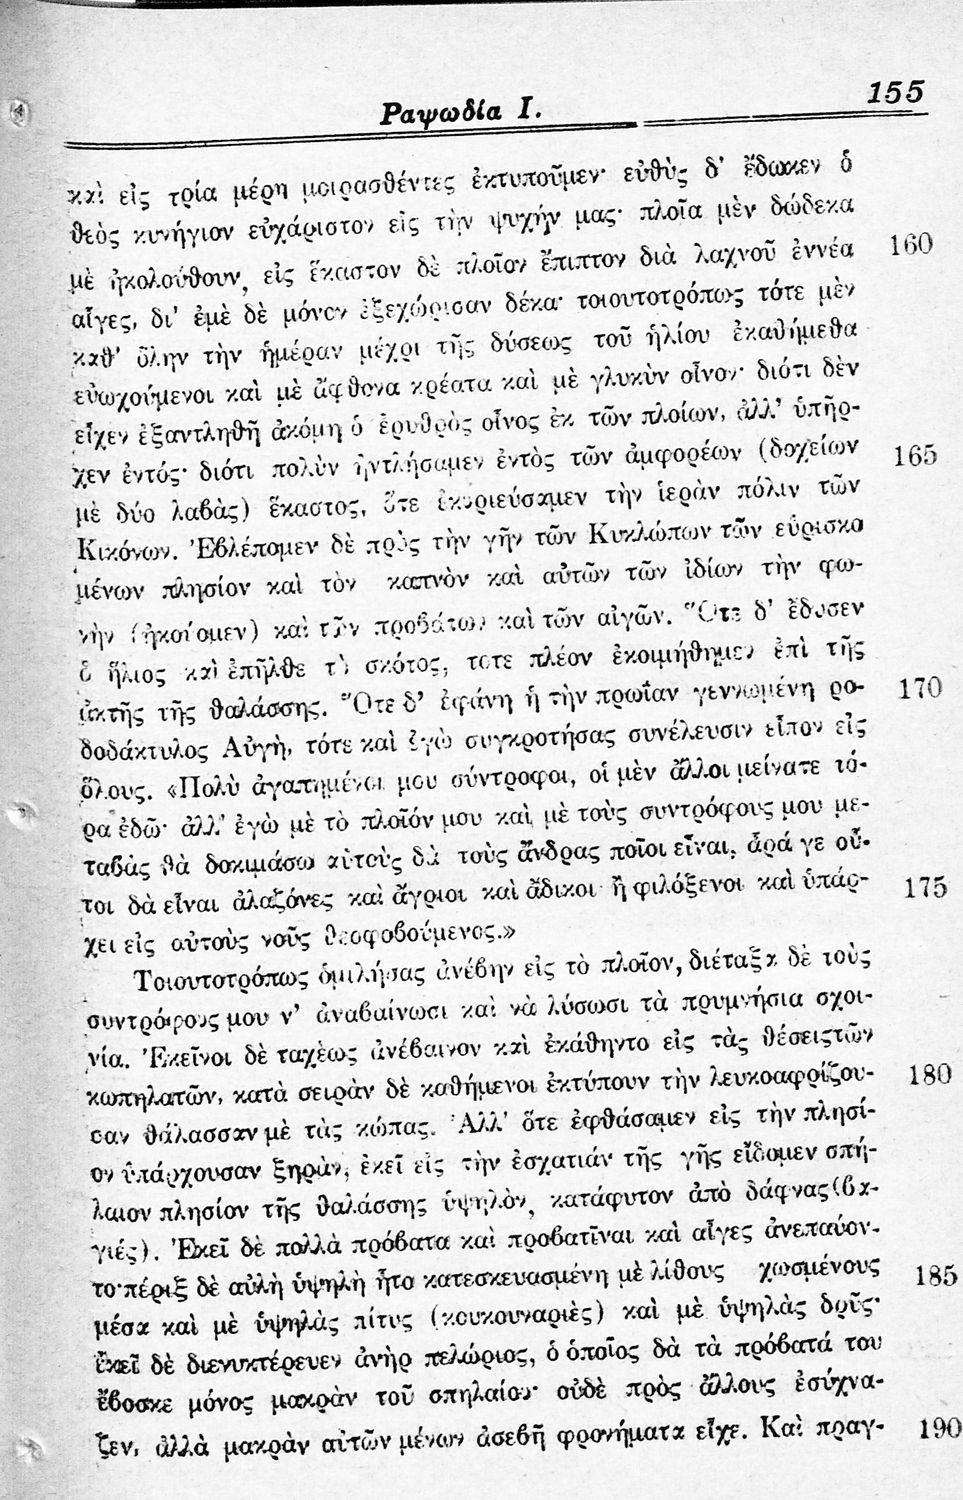 Ραψωδία Ι.
155
καὶ εἰς τρία μέρη μοιρασθέντες ἐκτυποῦμεν· εὐθὺς δ' ἔδωκεν ὁ
θεὸς κυνήγιον εὐχάριστον εἰς τὴν ψυχήν μας· πλοῖα μὲν δώδεκα
μὲ ἠκολούθουν, εἰς ἕκαστον δὲ πλοῖον ἔπιπτον διὰ λαχνοῦ ἐννέα 160
αἶγες, δι' ἐμὲ δὲ μόνον ἐξεχώρισαν δέκα· τοιουτοτρόπως τότε μὲν
καθ' ὅλην τὴν ἡμέραν μέχρι τῆς δύσεως τοῦ ἡλίου ἐκαθήμεθα
εὐωχούμενοι καὶ μὲ ἄφθονα κρέατα καὶ μὲ γλυκὺν οἶνον· διότι δὲν
εἶχεν ἐξαντληθῆ ἀκόμη ὁ ἐρυθρὸς οἶνος ἐκ τῶν πλοίων, ἀλλ' ὑπῆρ-
χεν ἐντός· διότι πολὺν ἠντλήσαμεν ἐντὸς τῶν ἀμφορέων (δοχείων 165
μὲ δύο λαβὰς) ἕκαστος, ὅτε ἐκυριεύσαμεν τὴν ἱερὰν πόλιν τῶν
Κικόνων. Ἐβλέπομεν δὲ πρὸς τὴν γῆν τῶν Κυκλώπων τῶν εὑρισκο
μένων πλησίον καὶ τὸν καπνὸν καὶ αὐτῶν τῶν ἰδίων τὴν φω-
νὴν (ἠκούομεν) καὶ τῶν προβάτων καὶ τῶν αἰγῶν. Ὅτε δ' ἔδυσεν
ὁ ἥλιος καὶ ἐπῆλθε τὸ σκότος, τότε πλέον ἐκοιμήθημεν ἐπὶ τῆς
ἀκτῆς τῆς θαλάσσης. Ὅτε δ' ἐφάνη ἡ τὴν πρωΐαν γεννωμένη ρο- 170
δοδάκτυλος Αὐγὴ, τότε καὶ ἐγὼ συγκροτήσας συνέλευσιν εἶπον εἰς
ὅλους. «Πολὺ ἀγαπημένοι μου σύντροφοι, οἱ μὲν ἄλλοι μείνατε τώ-
ρα ἐδῶ· ἀλλ' ἐγὼ μὲ τὸ πλοῖόν μου καὶ μὲ τοὺς συντρόφους μου με-
ταβὰς θὰ δοκιμάσω αὐτοὺς δὰ τοὺς ἄνδρας ποῖοι εἶναι, ἆρά γε οὗ-
τοι δὰ εἶναι ἀλαζόνες καὶ ἄγριοι καὶ ἄδικοι ἢ φιλόξενοι καὶ ὑπάρ- 175
χει εἰς αὐτοὺς νοῦς θεοφοβούμενος.»
Τοιουτοτρόπως ὁμιλήσας ἀνέβην εἰς τὸ πλοῖον, διέταξα δὲ τοὺς
συντρόφους μου ν' ἀναβαίνωσι καὶ νὰ λύσωσι τὰ πρυμνήσια σχοι-
νία. Ἐκεῖνοι δὲ ταχέως ἀνέβαινον καὶ ἐκάθηντο εἰς τὰς θέσεις τῶν
κωπηλατῶν, κατὰ σειρὰν δὲ καθήμενοι ἐκτύπουν τὴν λευκοαφρίζου- 180
σαν θάλασσαν μὲ τὰς κώπας. Ἀλλ' ὅτε ἐφθάσαμεν εἰς τὴν πλησί-
ον ὑπάρχουσαν ξηρὰν, ἐκεῖ εἰς τὴν ἐσχατιάν τῆς γῆς εἴδομεν σπή-
λαιον πλησίον τῆς θαλάσσης ὑψηλὸν, κατάφυτον ἀπὸ δάφνας (βα-
γιές). Ἐκεῖ δὲ πολλὰ πρόβατα καὶ προβατῖναι καὶ αἶγες ἀνεπαύον-
το· πέριξ δὲ αὐλὴ ὑψηλὴ ἦτο κατεσκευασμένη μὲ λίθους χωσμένους 185
μέσα καὶ μὲ ὑψηλὰς πίτυς (κουκουναριὲς) καὶ μὲ ὑψηλὰς δρῦς·
ἐκεῖ δὲ διενυκτέρευεν ἀνὴρ πελώριος, ὁ ὁποῖος δὰ τὰ πρόβατά του
ἔβοσκε μόνος μακρὰν τοῦ σπηλαίου· οὐδὲ πρὸς ἄλλους ἐσύχνα-
ζεν, ἀλλὰ μακρὰν αὐτῶν μένων ἀσεβῆ φρονήματα εἶχε. Καὶ πραγ- 190